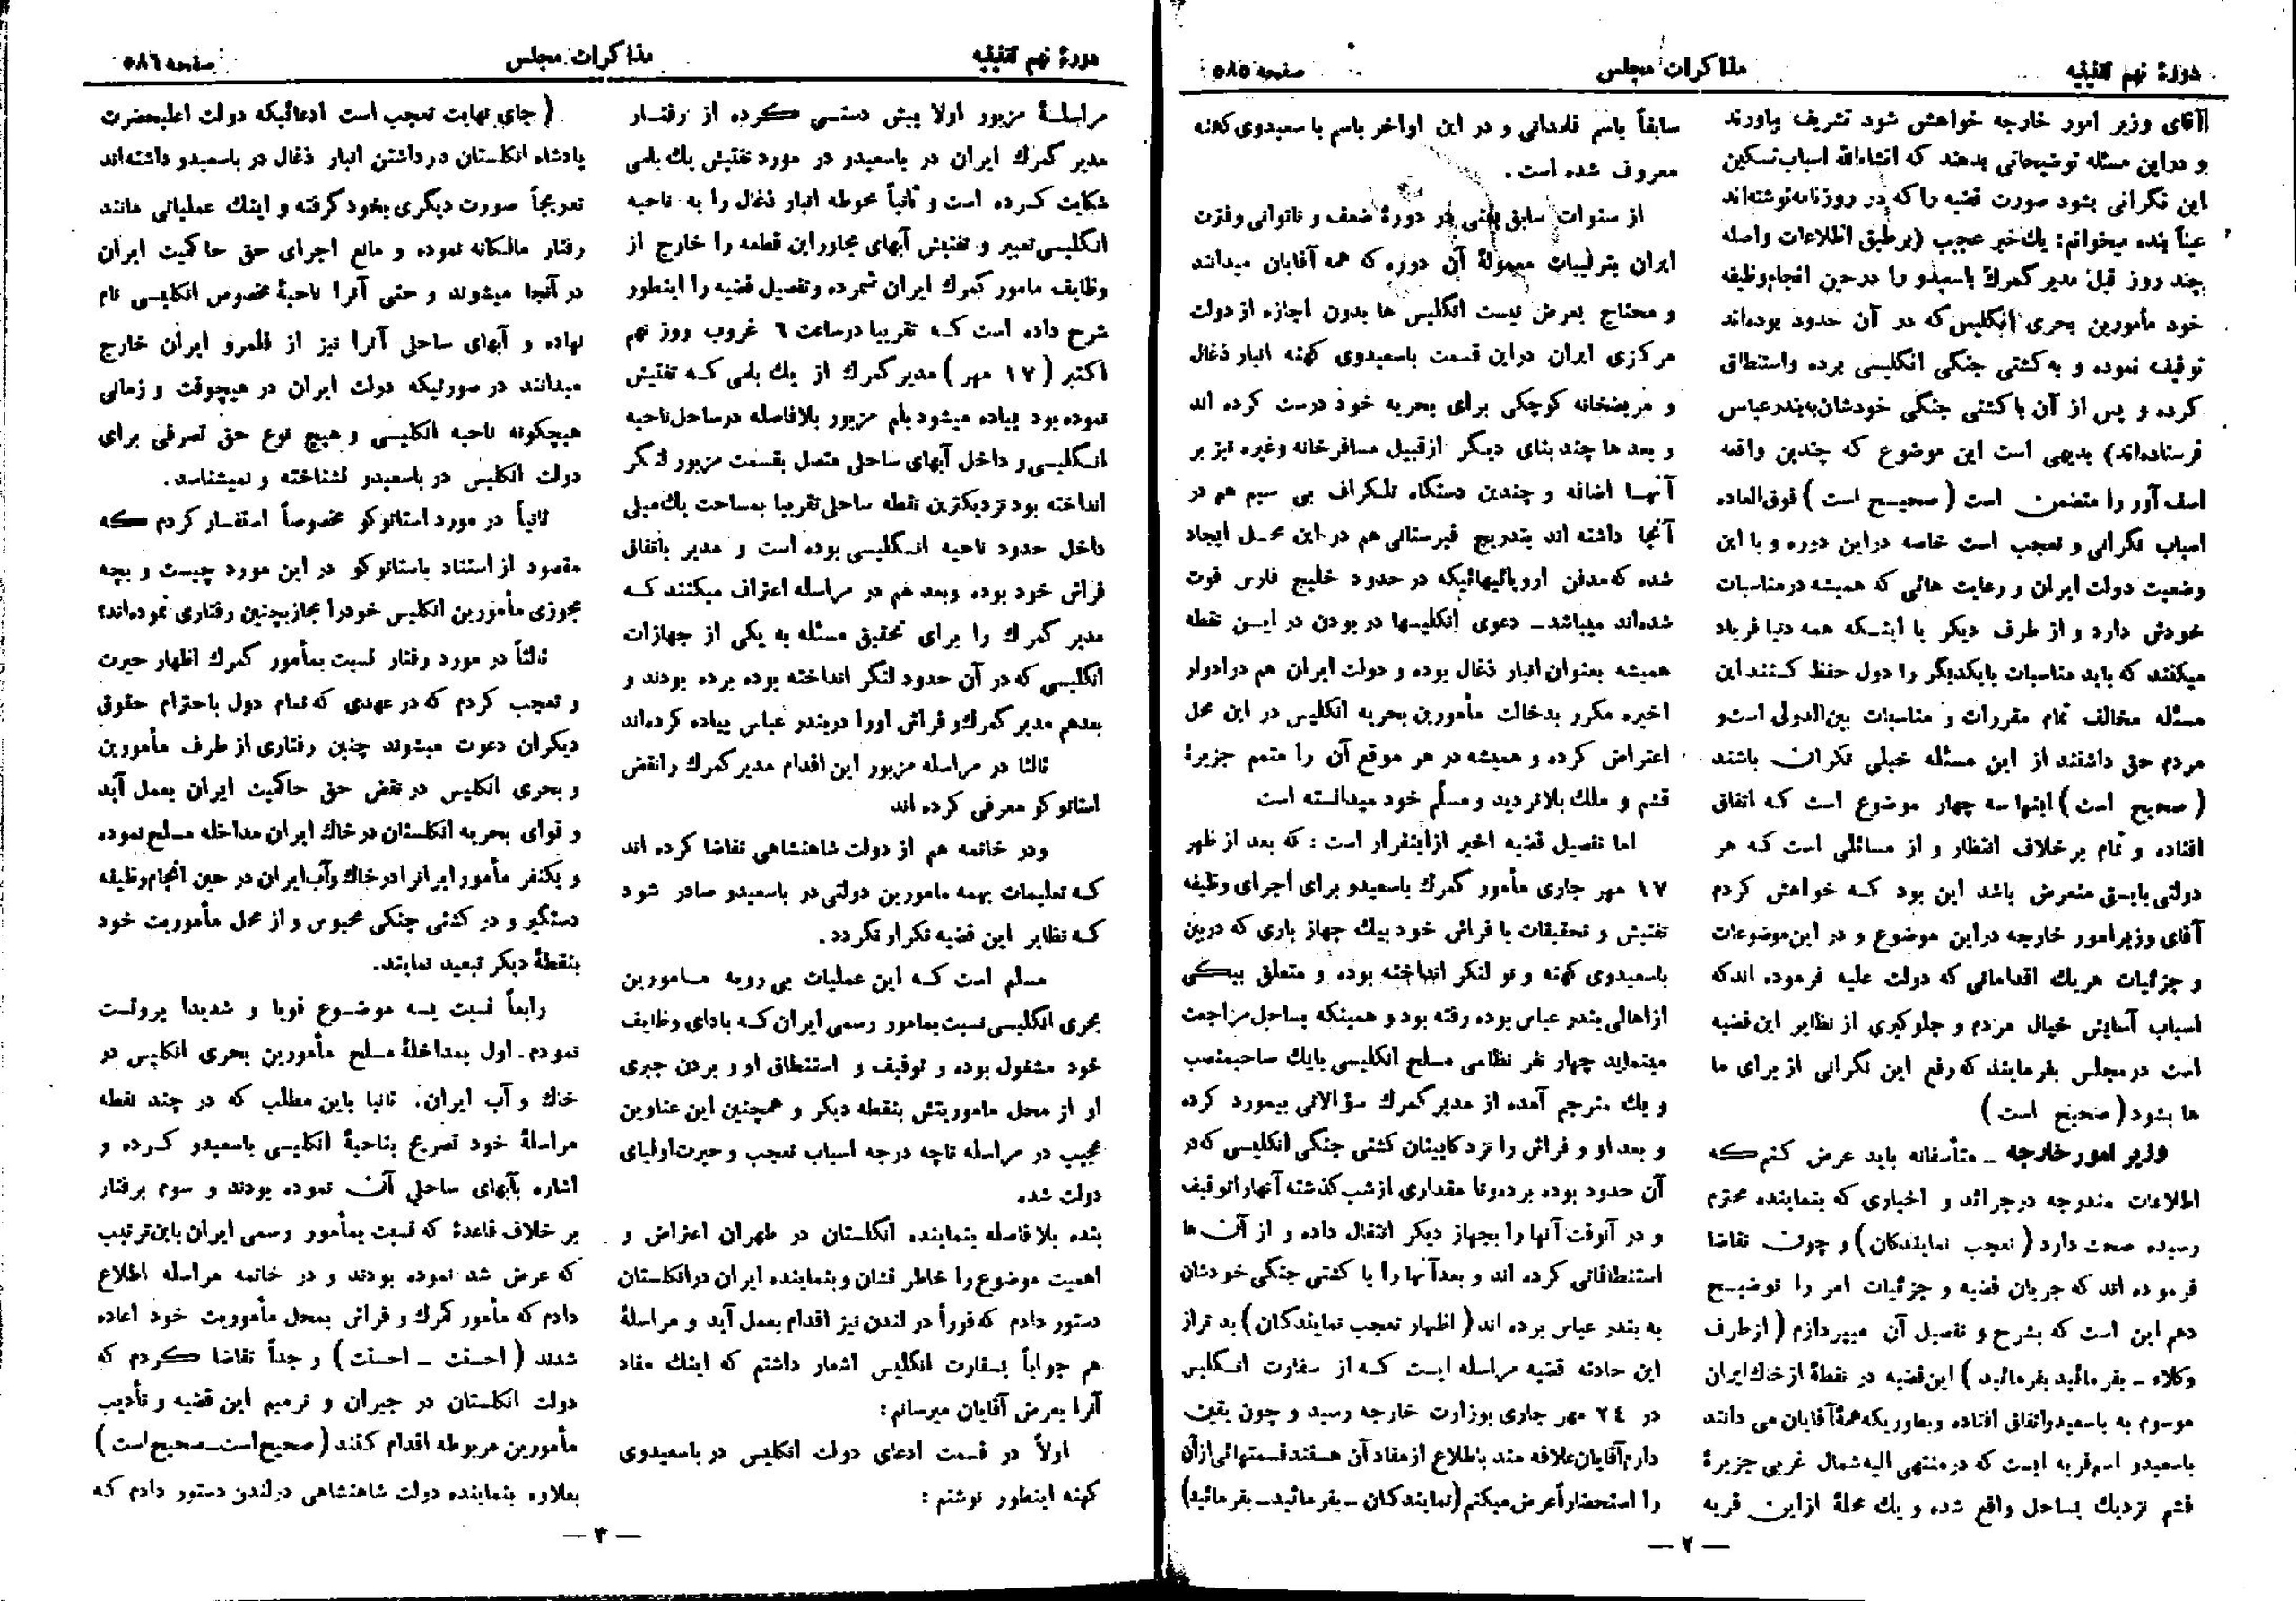 دورهٔ نهم تقنینیه
مذاکرات مجلس
صفحه ۵۸۵
آقای وزیر امور خارجه خواهش شود تشریف بیاورند
و در این مسئله توضیحاتی بدهند که انشاءالله اسباب تسکین
این نگرانی بشود صورت قضیه را که در روزنامه نوشته‌اند
عیناً بنده میخوانم: یك خبر عجیب (بر طبق اطلاعات واصله
چند روز قبل مدیر گمرك باسعیدو را در حین انجام وظیفه
خود مأمورین بحری انگلیس که در آن حدود بوده‌اند
توقیف نموده و به کشتی جنگی انگلیسی برده و استنطاق
کرده و پس از آن با کشتی جنگی خودشان به بندر عباس
فرستاده‌اند) بدیهی است این موضوع که چندین واقعه
اسف آور را متضمن است (صحیح است) فوق‌العاده
اسباب نگرانی و تعجب است خاصه در این دوره و با این
وضعیت دولت ایران و رعایت هائی که همیشه در مناسبات
خودش دارد و از طرف دیگر با اینکه همه دنیا فریاد
میکنند که باید مناسبات بایکدیگر را دول حفظ کنند این
مسئله مخالف تمام مقررات و مناسبات بین‌الدولی است و
مردم حق داشتند از این مسئله خیلی نگران باشند
(صحیح است) اینها سه چهار موضوع است که اتفاق
افتاده و تمام بر خلاف انتظار و از مسائلی است که هر
دولتی بایستی متعرض باشد این بود که خواهش کردم
آقای وزیر امور خارجه در این موضوع و در این موضوعات
و جزئیات هر یك اقداماتی که دولت علیه فرموده اند که
اسباب آسایش خیال مردم و جلوگیری از نظایر این قضیه
است در مجلس بفرمایند که رفع این نگرانی از برای ما
ها بشود (صحیح است)
وزیر امور خارجه ـ متأسفانه باید عرض کنم که
اطلاعات مندرجه در جرائد و اخباری که بنماینده محترم
رسیده صحت دارد (تعجب نمایندگان) و چون تقاضا
فرموده اند که جریان قضیه و جزئیات امر را توضیح
دهم این است که بشرح و تفصیل آن میپردازم (از طرف
وکلاء ـ بفرمائید بفرمائید) این قضیه در نقطهٔ از خاك ایران
موسوم به باسعیدو اتفاق افتاده و بطوریکه همهٔ آقایان می دانند
باسعیدو اسم قریه ایست که در منتهی الیه شمال غربی جزیرهٔ
قشم نزدیك بساحل واقع شده و یك محلهٔ از این قریه
سابقاً باسم قلعدانی و در این اواخر باسم باسعیدوی کهنه
معروف شده است.
از سنوات سابق یعنی در دورهٔ ضعف و ناتوانی و فترت
ایران بترتیبات معمولهٔ آن دوره که همه آقایان میدانند
و محتاج بعرض نیست انگلیس ها بدون اجازه از دولت
مرکزی ایران در این قسمت باسعیدوی کهنه انبار ذغال
و مریضخانه کوچکی برای بحریه خود درست کرده اند
و بعد ها چند بنای دیگر از قبیل مسافر خانه و غیره نیز بر
آنها اضافه و چندین دستگاه تلگراف بی سیم هم در
آنجا داشته اند بتدریج قبرستانی هم در این محل ایجاد
شده که مدفن اروپائیهائیکه در حدود خلیج فارس فوت
شده‌اند میباشد ـ دعوی انگلیسها در بودن در این نقطه
همیشه بعنوان انبار ذغال بوده و دولت ایران هم در ادوار
اخیره مکرر بدخالت مأمورین بحریه انگلیس در این محل
اعتراض کرده و همیشه در هر موقع آن را متمم جزیرهٔ
قشم و ملك بلاتردید و مسلّم خود میدانسته است
اما تفصیل قضیه اخیر از اینقرار است: که بعد از ظهر
۱۷ مهر جاری مأمور گمرك باسعیدو برای اجرای وظیفه
تفتیش و تحقیقات با فراش خود بیك جهاز باری که در بین
باسعیدوی کهنه و نو لنگر انداخته بوده و متعلق بیکی
از اهالی بندر عباس بوده رفته بود و همینکه بساحل مراجعت
مینماید چهار نفر نظامی مسلح انگلیسی با یك صاحبمنصب
و یك مترجم آمده از مدیر گمرك سؤالاتی بیمورد کرده
و بعد او و فراش را نزد کاپیتان کشتی جنگی انگلیسی که در
آن حدود بوده برده و تا مقداری از شب گذشته آنها را توقیف
و در آنوقت آنها را بجهاز دیگر انتقال داده و از آن ها
استنطاقاتی کرده اند و بعد آنها را با کشتی جنگی خودشان
به بندر عباس برده اند (اظهار تعجب نمایندگان) بد تر از
این حادثه قضیه مراسله ایست که از سفارت انگلیس
در ۲۴ مهر جاری بوزارت خارجه رسید و چون یقین
دارم آقایان علاقه مند باطلاع از مفاد آن هستند قسمتهائی از آن
را استحضاراً عرض میکنم (نمایندگان ـ بفرمائید ـ بفرمائید)
— ۲ —
دورهٔ نهم تقنینیه
مذاکرات مجلس
صفحه ۵۸۶
مراسلهٔ مزبور اولا پیش دستی کرده از رفتار
مدیر گمرك ایران در باسعیدو در مورد تفتیش یك بلمی
شکایت کرده است و ثانیاً محوطه انبار ذغال را به ناحیه
انگلیسی تعبیر و تفتیش آبهای مجاور این قطعه را خارج از
وظایف مامور گمرك ایران شمرده و تفصیل قضیه را اینطور
شرح داده است که تقریبا در ساعت ۶ غروب روز نهم
اکتبر (۱۷ مهر) مدیر گمرك از یك بلمی که تفتیش
نموده بود پیاده میشود بلم مزبور بلافاصله در ساحل ناحیه
انگلیسی و داخل آبهای ساحلی متصل بقسمت مزبور لنگر
انداخته بود نزدیکترین نقطه ساحلی تقریبا بمساحت یك میلی
داخل حدود ناحیه انگلیسی بوده است و مدیر باتفاق
فراش خود بوده و بعد هم در مراسله اعتراف میکنند که
مدیر گمرك را برای تحقیق مسئله به یکی از جهازات
انگلیسی که در آن حدود لنگر انداخته بوده برده بودند و
بعد هم مدیر گمرك و فراش او را در بندر عباس پیاده کرده‌اند
ثالثا در مراسله مزبور این اقدام مدیر گمرك را نقض
استاتوکو معرفی کرده اند
ودر خاتمه هم از دولت شاهنشاهی تقاضا کرده اند
که تعلیمات بهمه مامورین دولتی در باسعیدو صادر شود
که نظایر این قضیه تکرار نگردد.
مسلم است که این عملیات بی رویه مامورین
بحری انگلیسی نسبت بمامور رسمی ایران که بادای وظایف
خود مشغول بوده و توقیف و استنطاق او و بردن جبری
او از محل ماموریتش بنقطه دیگر و همچنین این عناوین
عجیب در مراسله تاچه درجه اسباب تعجب و حیرت اولیای
دولت شده
بنده بلافاصله بنماینده انگلستان در طهران اعتراض و
اهمیت موضوع را خاطر نشان و بنماینده ایران در انگلستان
دستور دادم که فوراً در لندن نیز اقدام بعمل آید و مراسلهٔ
هم جواباً بسفارت انگلیس اشعار داشتم که اینك مفاد
آنرا بعرض آقایان میرسانم:
اولاً در قسمت ادعای دولت انگلیس در باسعیدوی
کهنه اینطور نوشتم:
(جای نهایت تعجب است ادعائیکه دولت اعلیحضرت
پادشاه انگلستان در داشتن انبار ذغال در باسعیدو داشته‌اند
تدریجاً صورت دیگری بخود گرفته و اینك عملیاتی مانند
رفتار مالکانه نموده و مانع اجرای حق حاکمیت ایران
در آنجا میشوند و حتی آنرا ناحیهٔ مخصوص انگلیسی نام
نهاده و آبهای ساحلی آنرا نیز از قلمرو ایران خارج
میدانند در صورتیکه دولت ایران در هیچوقت و زمانی
هیچگونه ناحیه انگلیسی و هیچ نوع حق تصرفی برای
دولت انگلیس در باسعیدو نشناخته و نمیشناسد.
ثانیاً در مورد استاتوکو مخصوصاً استفسار کردم که
مقصود از استناد باستاتوکو در این مورد چیست و بچه
مجوزی مأمورین انگلیس خود را مجاز بچنین رفتاری نموده‌اند؟
ثالثاً در مورد رفتار نسبت بمأمور گمرك اظهار حیرت
و تعجب کردم که در عهدی که تمام دول باحترام حقوق
دیگران دعوت میشوند چنین رفتاری از طرف مأمورین
و بحری انگلیس در نقض حق حاکمیت ایران بعمل آید
و قوای بحریه انگلستان در خاك ایران مداخله مسلح نموده
و یکنفر مأمور ایران را در خاك و آب ایران در حین انجام وظیفه
دستگیر و در کشتی جنگی محبوس و از محل مأموریت خود
بنقطهٔ دیگر تبعید نمایند.
رابعاً نسبت بسه موضوع قویا و شدیدا پروتست
نمودم. اول بمداخلهٔ مسلح مأمورین بحری انگلیس در
خاك و آب ایران. ثانیا باین مطلب که در چند نقطه
مراسلهٔ خود تصریح بناحیهٔ انگلیسی باسعیدو کرده و
اشاره بآبهای ساحلی آن نموده بودند و سوم برفتار
بر خلاف قاعدهٔ که نسبت بمأمور رسمی ایران باین ترتیب
که عرض شد نموده بودند و در خاتمه مراسله اطلاع
دادم که مأمور گمرك و فراش بمحل مأموریت خود اعاده
شدند (احسنت ـ احسنت) و جداً تقاضا کردم که
دولت انگلستان در جبران و ترمیم این قضیه و تأدیب
مأمورین مربوطه اقدام کنند (صحیح است ـ صحیح است)
بعلاوه بنماینده دولت شاهنشاهی در لندن دستور دادم که
— ۳ —